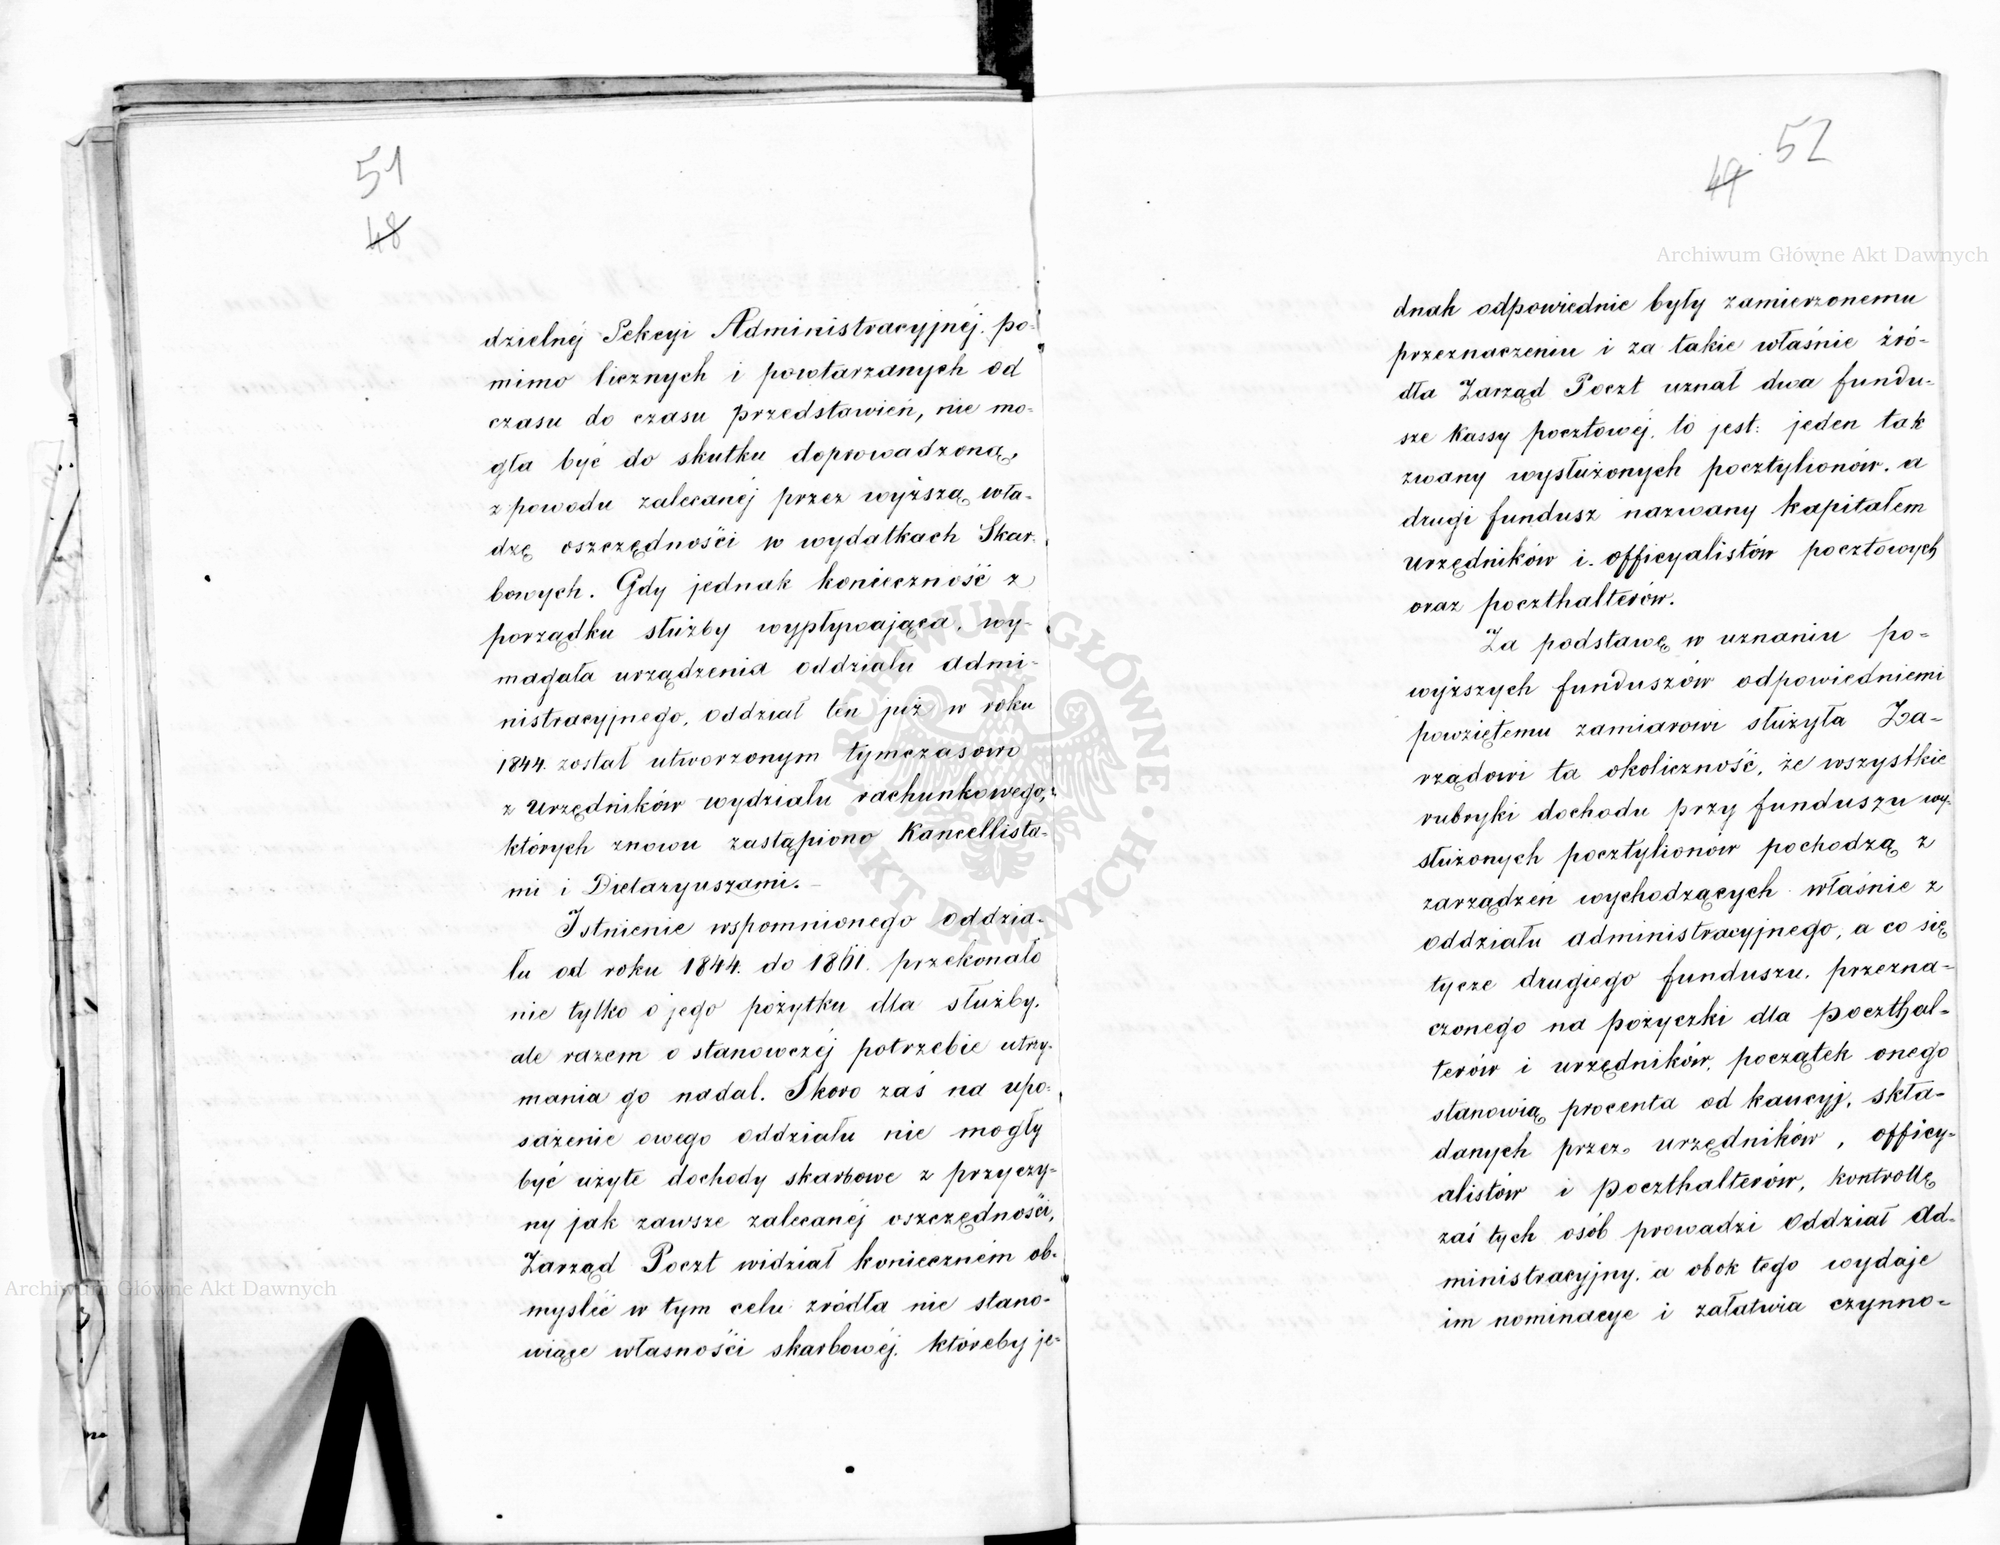 51
48
dzielnéj Sekcyi Administracyjnéj, po-
mimo licznych i powtarzanych od
czasu do czasu przedstawień, nie mo-
gła być do skutku doprowadzoną,
z powodu zalecanéj przez wyższą wła-
dzę oszczędności w wydatkach Skar-
bowych. Gdy jednak konieczność z
porządku służby wypływająca, wy-
magała urządzenia oddziału admi-
nistracyjnego, oddział ten już w roku
1844. został utworzonym tymczasowo
z Urzędników wydziału rachunkowego,
których znowu zastąpiono Kancellista-
mi i Dietaryuszami.–
Istnienie wspomnionego oddzia-
łu od roku 1844. do 1861. przekonało
nie tylko o jego pożytku dla służby,
ale razem o stanowczéj potrzebie utrzy-
mania go nadal. Skoro zaś na upo-
sażenie owego oddziału nie mogły
być użyte dochody skarbowe z przyczy-
ny jak zawsze zalecanéj oszczędności,
Zarząd Poczt widział konieczném ob-
myśleć w tym celu źródła nie stano-
wiące własności skarbowéj, któreby je-
52
49
dnak odpowiednie były zamierzonemu
przeznaczeniu i za takie właśnie źró-
dła Zarząd Poczt uznał dwa fundu-
sze Kassy pocztowéj, to jest: jeden tak
zwany wysłużonych pocztylionów, a
drugi fundusz nazwany kapitałem
urzędników i officyalistów pocztowych
oraz poczthalterów.
Za podstawę w uznaniu po-
wyższych funduszów odpowiedniemi
powziętemu zamiarowi służyła Za-
rządowi ta okoliczność, że wszystkie
rubryki dochodu przy funduszu wy-
służonych pocztylionów pochodzą z
zarządzeń wychodzących właśnie z
oddziału administracyjnego, a co się
tycze drugiego funduszu, przezna-
czonego na pożyczki dla poczthal-
terów i urzędników, początek onego
stanowią procenta od kaucyj, skła-
danych przez urzędników, officy-
alistów i poczthalterów, kontrollę
zaś tych osób prowadzi Oddział Ad-
ministracyjny, a obok tego wydaje
im nominacye i załatwia czynno-
Archiwum Główne Akt Dawnych
Archiwum Główne Akt Dawnych
ARCHIWUM GŁÓWNE · AKT DAWNYCH ·